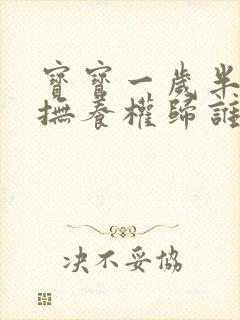 寶寶一歲半
撫養權歸誰
決不妥協